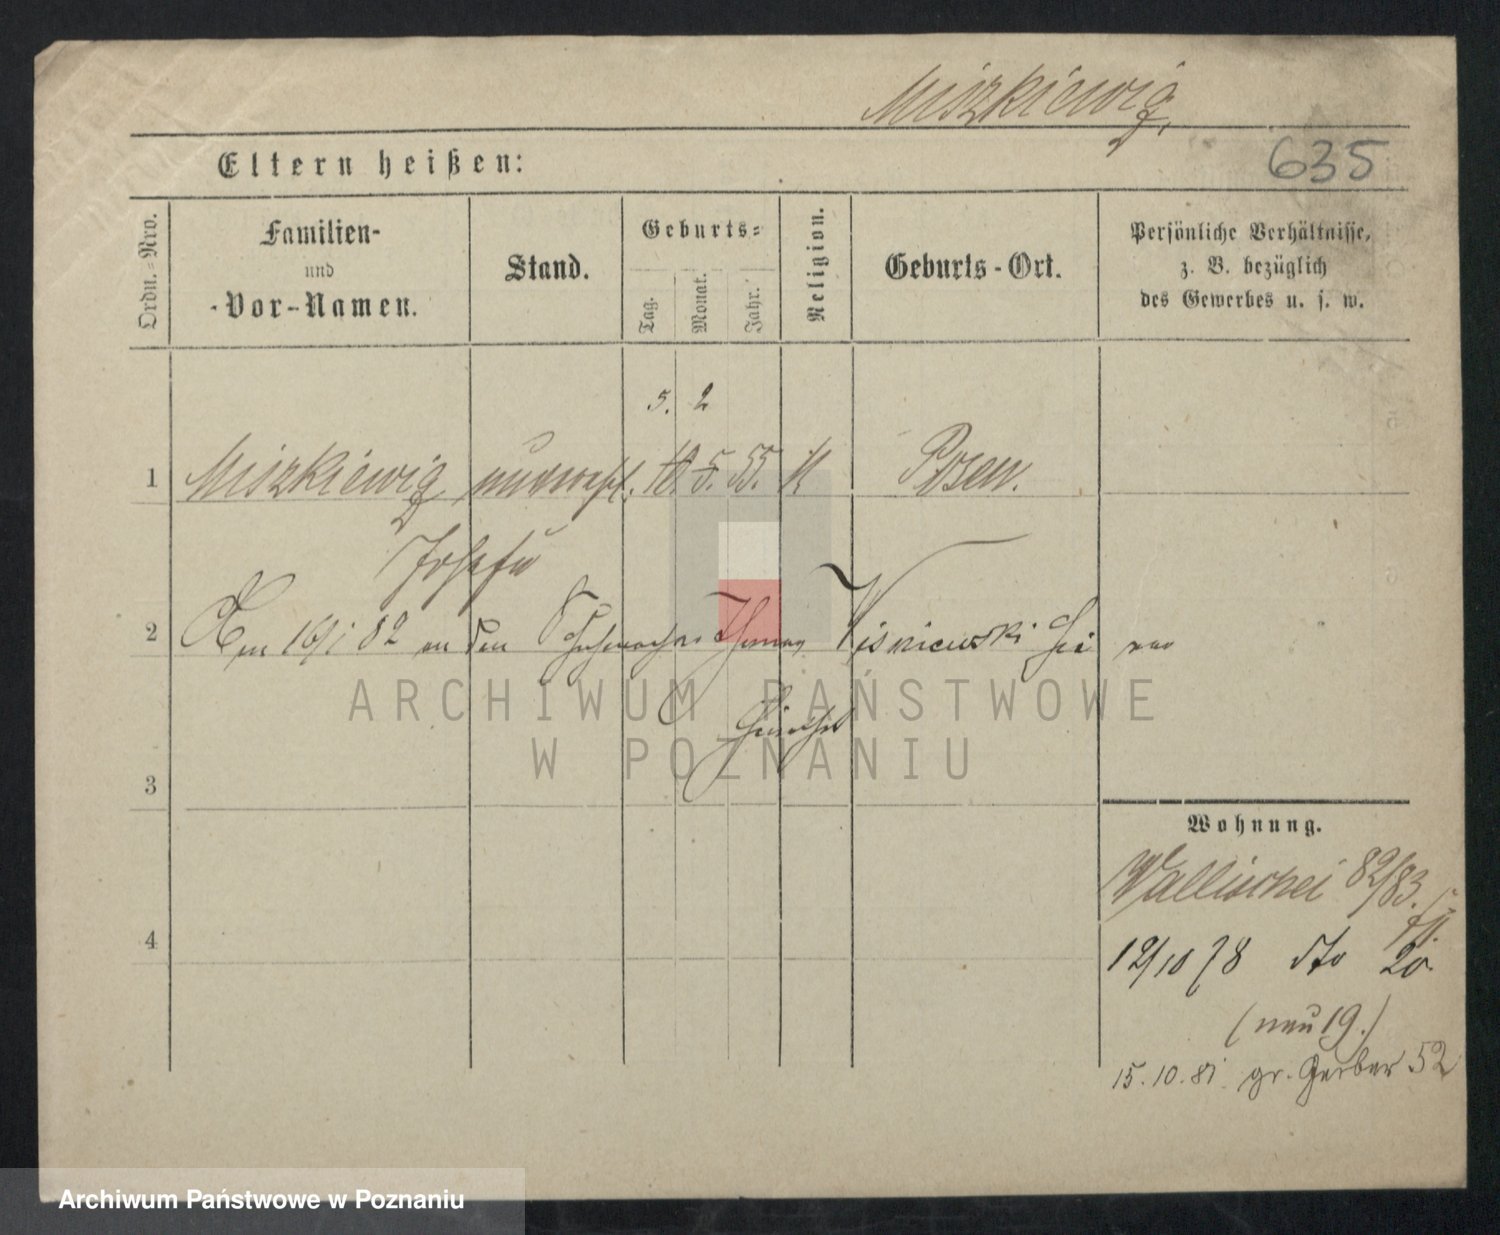 Miszkiewig,
635
Eltern heißen:
Ordn.=Nro.
Familien-
und
Vor-Namen.
Stand.
Geburts=
Tag.
Monat.
Jahr.
Religion.
Geburts-Ort.
Persönliche Verhältnisse,
z. B. bezüglich
des Gewerbes u. s. w.
5. 2
1 Miszkiewig unverehl. 10. 5. 55. K Posen.
Josefa
2 Am 16/1 82 an den Schuhmacher Thomas Wisniewski hie von
3
Wohnung.
Wallischei 82/83.
4
12/10 78 dto 20
(neu 19.)
15.10.81. gr. Gerber 52
ARCHIWUM PAŃSTWOWE
W POZNANIU
Archiwum Państwowe w Poznaniu